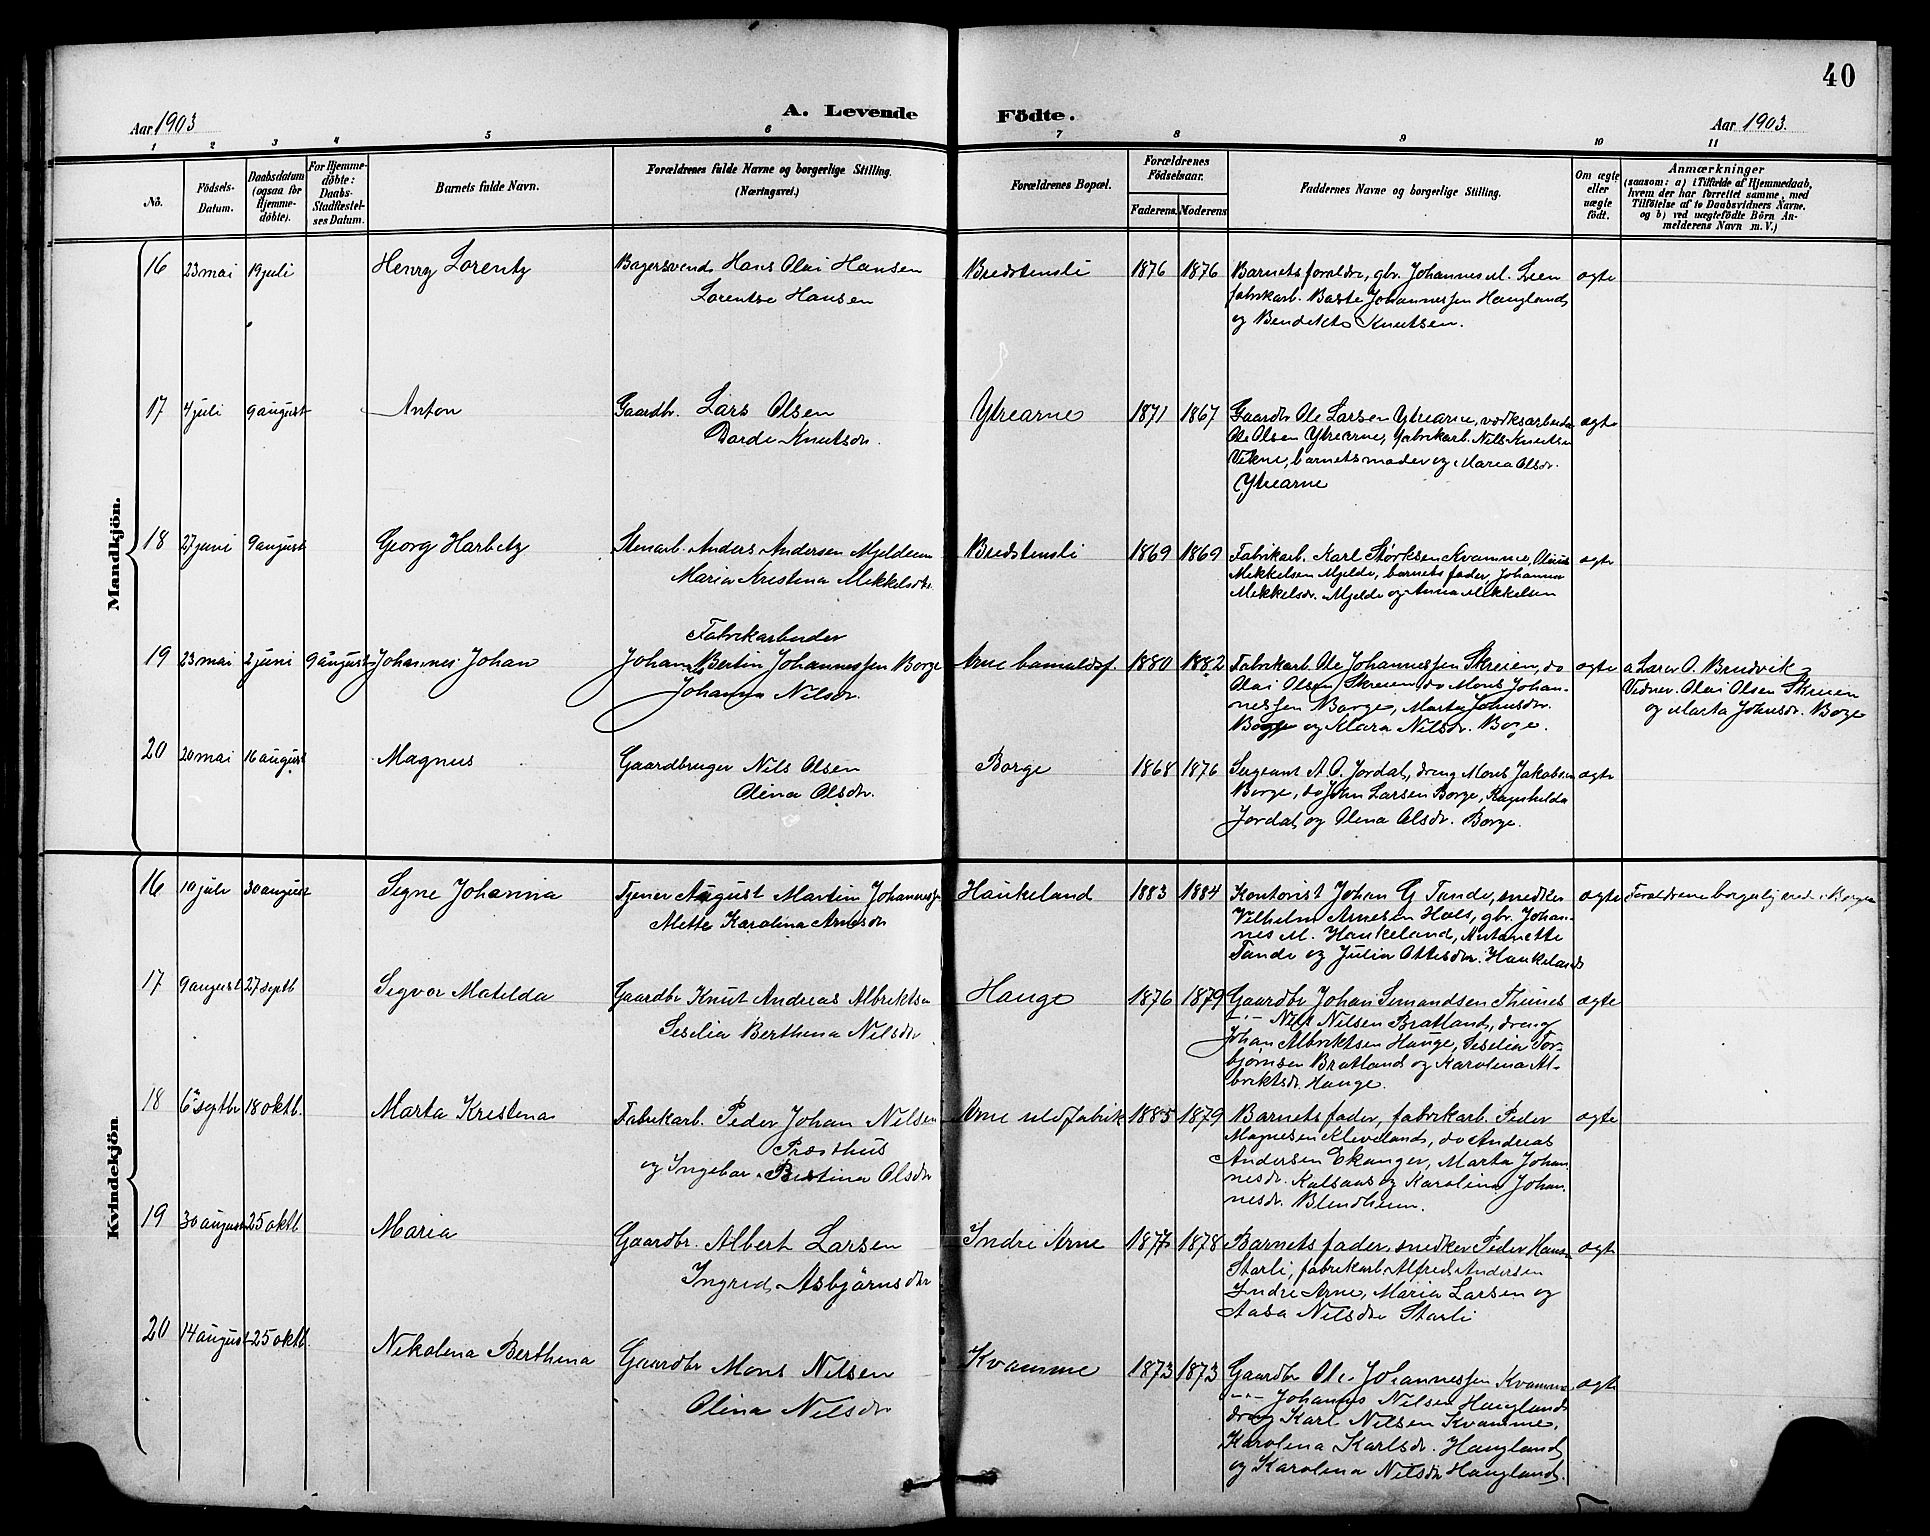 40
A. Levende Födte.
Aar 1903
Aar 1903.
1 2 3 4 5 6 7 8 9 10 11
No.
Födsels-Datum.
Daabsdatum (ogsaa for Hjemme-döbte).
For Hjemme-döbte: Daabs-Stadfæstel-ses Datum.
Barnets fulde Navn.
Forældrenes fulde Navne og borgerlige Stilling. (Næringsvei.)
Forældrenes Bopæl.
Forældrenes Födselsaar.
Faderens. Moderens
Faddernes Navne og borgerlige Stilling.
Om ægte eller uægte födt.
Anmærkninger
(saasom: a) i Tilfælde af Hjemmedaab,
hvem der har forrettet samme, med
Tilföielse af to Daabsvidners Navne.
og b) ved uægtefödte Börn An-
melderens Navn m. V.)
Mandkjön.
16 23 mai 19 juli Henry Lorentz
Bagersvend Hans Olai Hansen
Lorentse Hansen
Bredstensli 1876 1876
Barnets foreldre, gbr. Johannes M. Lien
fabrikarb. Baste Johannessen Haugland
og Bendikte Knutsen.
ægte
17 4 juli 9 august Anton
Gaardbr. Lars Olsen
Barde Knutsdr.
Ytrearne 1871 1867
Gaardbr Ole Larsen Ytrearne, værksarbeider
Ole Olsen Ytrearne, fabrikarb. Nils Knutsen
Vikne, barnets moder og Maria Olsdr.
Ytrearne
ægte
18 27 juni 9 august Georg Harbetz
Stenarb. Anders Andersen Mjeldeim
Maria Kristina Mikkelsdtr.
Bredstensli 1869 1869
Fabrikarb. Karl Størksen Kvamme, Olaius
Mikkelsen Mjelde, barnets fader, Johanna
Mikkelsdr. Mjelde og Anna Mikkelsen
ægte
19 23 mai 2 juni 9 august Johannes Johan
Fabrikarbeider
Johan Bertin Johannessen Borge
Johanna Nilsdr.
Arne bomuldsf. 1880 1882
Fabrikarb. Ole Johannessen Skreien, do
Olai Olsen Skreien, do Mons Johan-
nessen Borge, Marta Johnsdr.
Borge og Mara Nilsdr. Borge.
ægte
a Lærer O. Bredvik
Vidner. Olai Olsen Skreien
og Marta Johnsdr. Borge
20 20 mai 16 august Magnus
Gaardbruger Nils Olsen
Olina Olsdr.
Borge 1868 1876
Sergeant A. O. Jordal, dreng Mons Jakobsen
Borge, do John Larsen Borge, Ragnhilda
Jordal og Olena Olsdr. Borge.
ægte
Kvindekjön
16 10 juli 30 august Signe Johanna
Tjener August Martin Johannessen
Mette Karolina Arnesdr
Haukeland 1883 1884
Kontorist Johan G Tande, snedker
Vilhelm Arnesen Hals, gbr. Johan-
nes M. Haukeland, Antonette
Tande og Julia Ottesdr. Haukeland
ægte
Forældrene borgerlig viede i Bergen
17 9 august 27 septb Sigvor Matilda
Gaardbr Knut Andreas Albriktsen
Sesilia Berthina Nilsdtr
Hauge 1876 1879
Gaardbr Johan Simondsen Thunes
-"- Nils Nilsen Bratland, dreng
Johan Albriktsen Hauge, Sesilia Tor-
bjørnsen Bratland og Karolina Al-
briktsdr. Hauge.
ægte
18 6 septbr 18 oktb. Marta Kristina
Fabrikarb. Peder Johan Nilsen
Præsthus
og Ingebor Bertina Olsdtr
Arne uldfabrik 1885 1879
Barnets fader, fabrikarb. Peder
Magnesen Kleveland, do Andreas
Andersen Ekanger, Marta Johan-
nesdr. Kalsaas og Karolina Johan-
nesdr. Blindheim.
ægte
19 30 august 25 oktb. Maria
Gaardbr. Albert Larsen
Ingrid Asbjørnsdtr
Indre Arne 1877 1878
Barnets fader, snedker Peder Hansen
Starli, fabrikarb. Alfred Andersen
Indre Arne, Maria Larsen og
Aasa Nilsdtr Starli
ægte
20 14 august 25 oktb. Nikolina Berthina
Gaardbr Mons Nilsen
Olina Nilsdr
Kvamme 1873 1873
Gaardbr Ole Johannessen Kvamme
-"- Johannes Nilsen Haugland
dreng Karl Nilsen Kvamme,
Karolina Karlsdr. Haugland
og Karolina Nilsdtr Haugland.
ægte